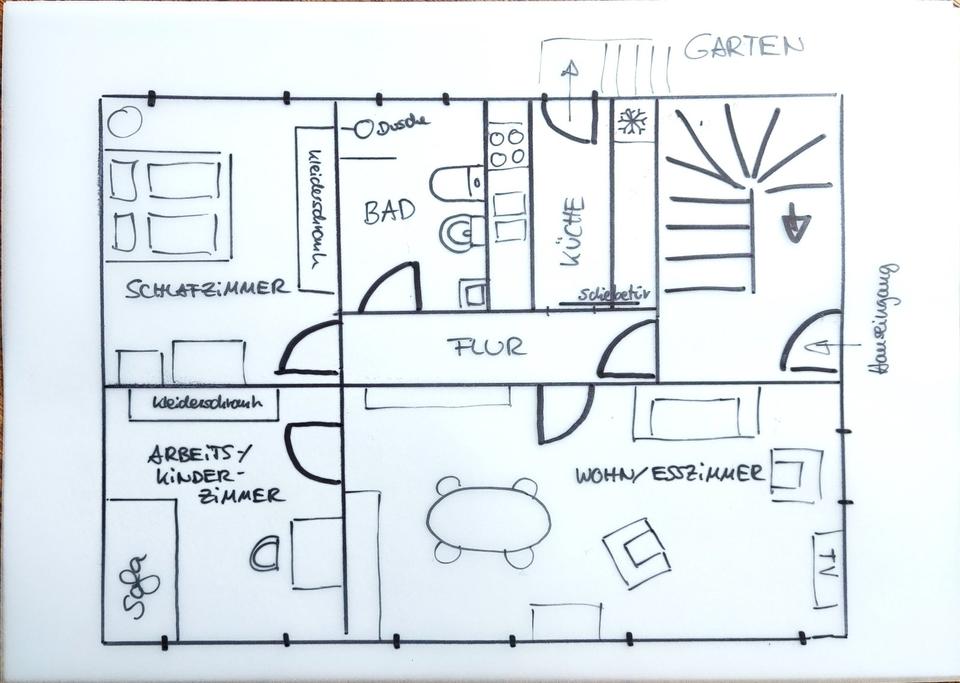 GARTEN
Dusche
Kleiderschrank
BAD
KÜCHE
SCHLAFZIMMER
Schiebetür
Hauseingang
FLUR
Kleiderschrank
ARBEITS-/
KINDER-
ZIMMER
WOHN/ESSZIMMER
Sofa
TV